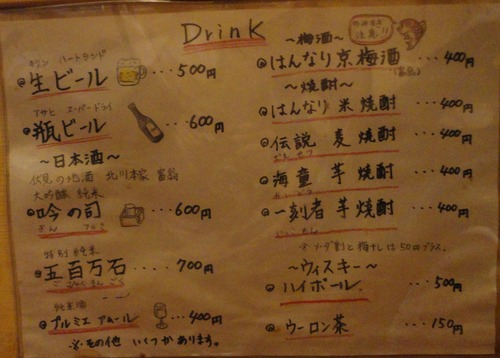 Drink
キリン ハートランド
生ビール ・・・ 500円
アサヒ スーパードライ
瓶ビール ・・・ 600円
～日本酒～
伏見の地酒 北川本家 富翁
大吟醸 純米
吟の司 ・・・ 600円
ぎん
特別純米
五百万石 ・・・・ 700円
ごひゃくまんごく
純米酒
プルミエアムール ・・・ 400円
※その他 いくつかあります。
～梅酒～
飲み過ぎ注意!!
はんなり京梅酒 ・・・ 400円
(富翁)
～焼酎～
はんなり 米焼酎 ・・・ 400円
伝説 麦焼酎 ・・・ 400円
でんせつ
海童 芋焼酎 ・・・ 400円
かいどう
一刻者 芋焼酎 ・・・ 400円
いっこもん
※ソーダ割と梅干しは50円プラス。
～ウィスキー～
ハイボール ・・・ 500円
ウーロン茶 ・・・ 150円